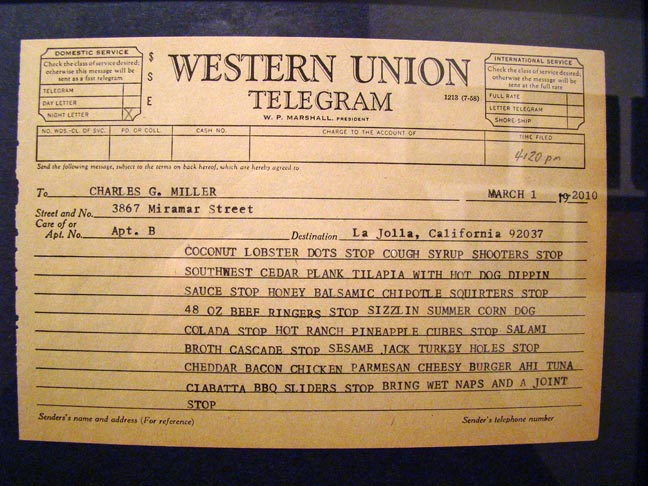 DOMESTIC SERVICE
Check the class of service desired;
otherwise this message will be
sent as a fast telegram
TELEGRAM
DAY LETTER
NIGHT LETTER X
$
S
E
WESTERN UNION
TELEGRAM
1213 (7-58)
W. P. MARSHALL, PRESIDENT
INTERNATIONAL SERVICE
Check the class of service desired;
otherwise this message will be
sent at the full rate
FULL RATE
LETTER TELEGRAM
SHORE-SHIP
NO. WDS.-CL. OF SVC. PD. OR COLL. CASH NO. CHARGE TO THE ACCOUNT OF TIME FILED
4:20 pm
Send the following message, subject to the terms on back hereof, which are hereby agreed to
To CHARLES G. MILLER MARCH 1 19 2010
Street and No. 3867 Miramar Street
Care of or
Apt. No. Apt. B Destination La Jolla, California 92037
COCONUT LOBSTER DOTS STOP COUGH SYRUP SHOOTERS STOP
SOUTHWEST CEDAR PLANK TILAPIA WITH HOT DOG DIPPIN
SAUCE STOP HONEY BALSAMIC CHIPOTLE SQUIRTERS STOP
48 OZ BEEF RINGERS STOP SIZZLIN SUMMER CORN DOG
COLADA STOP HOT RANCH PINEAPPLE CUBES STOP SALAMI
BROTH CASCADE STOP SESAME JACK TURKEY HOLES STOP
CHEDDAR BACON CHICKEN PARMESAN CHEESY BURGER AHI TUNA
CIABATTA BBQ SLIDERS STOP BRING WET NAPS AND A JOINT
STOP
Senders's name and address (For reference) Sender's telephone number